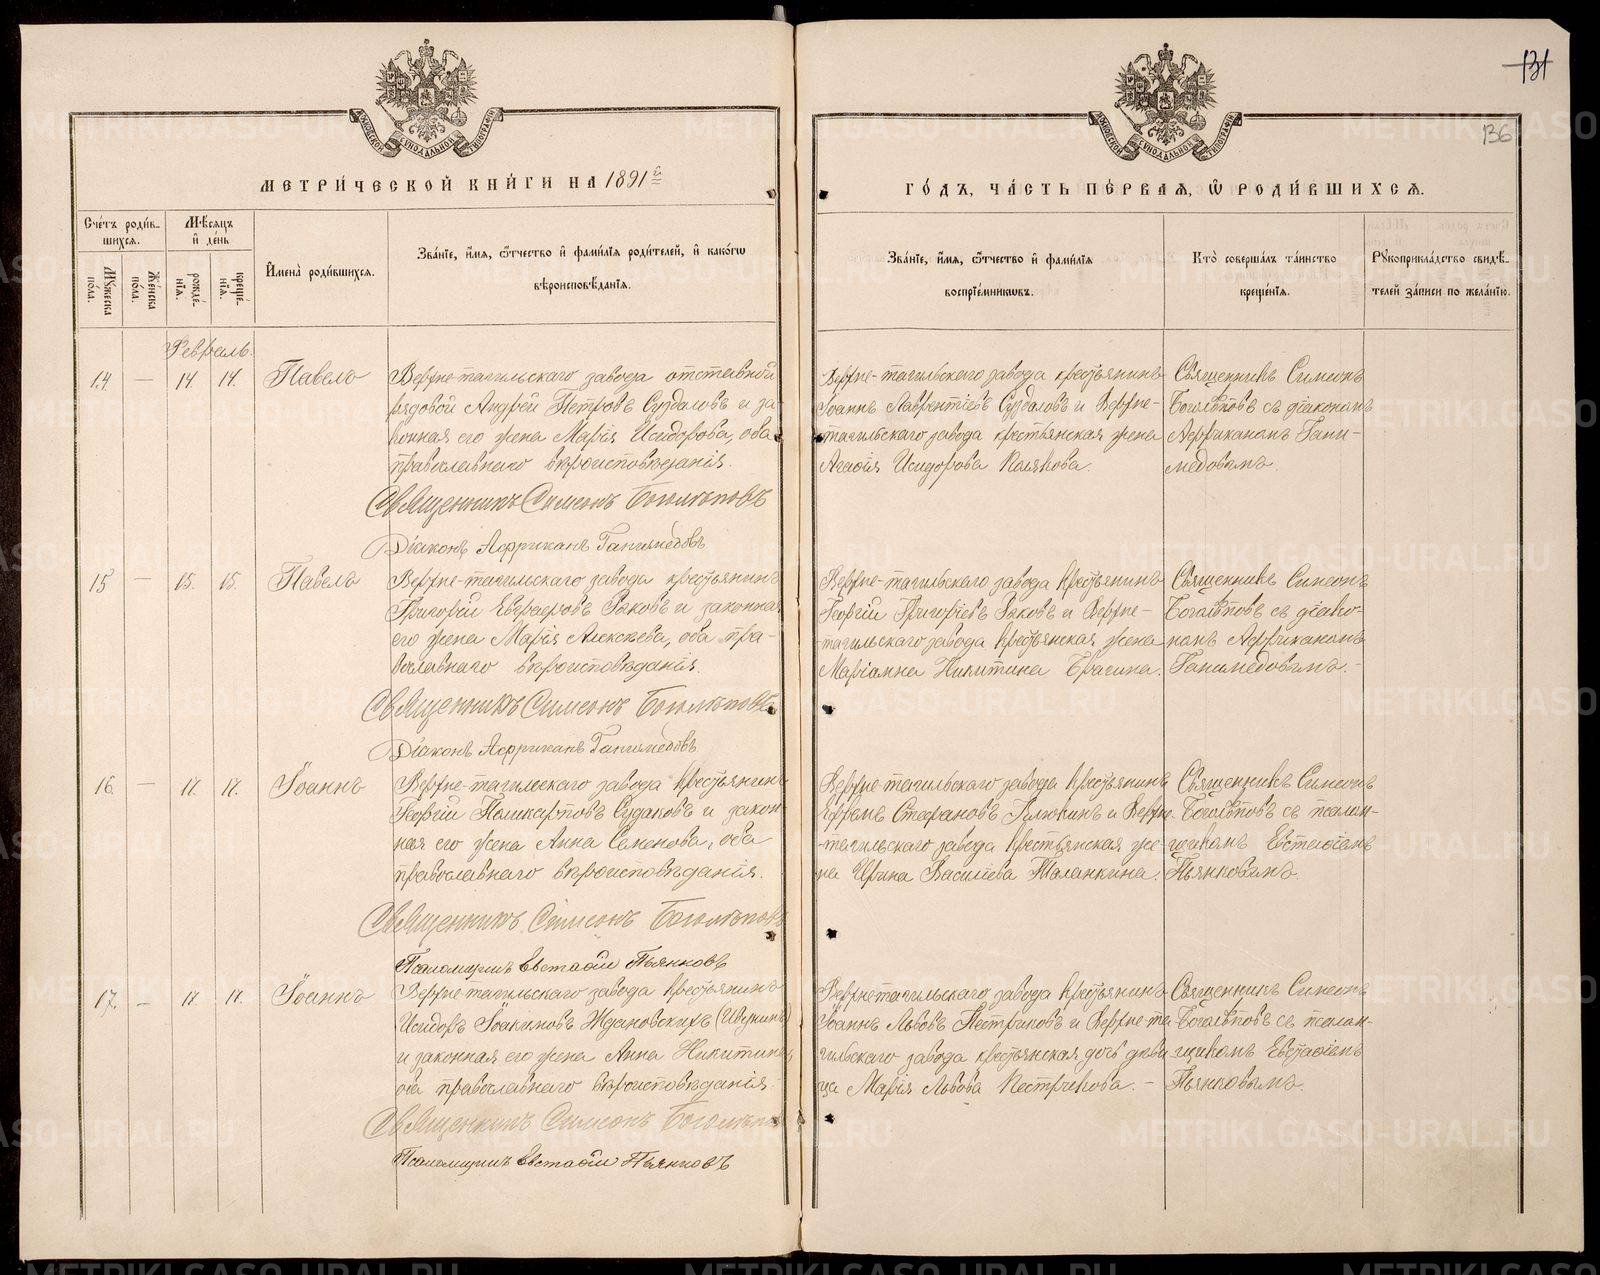 131
136
МОСКОВСКОЙ СѴНОДАЛЬНОЙ ТИПОГРАФІИ
МОСКОВСКОЙ СѴНОДАЛЬНОЙ ТИПОГРАФІИ
МЕТРИ́ЧЕСКОЙ КНИ́ГИ НА 1891й
ГО́ДЪ, ЧА́СТЬ ПЕ́РВАЯ, Ѡ РОДИ́ВШИХСЯ.
Сче́тъ роди́в-
шихся.
Мѣ́сяцъ
и҆ де́нь
Му́жеска по́ла.
Же́нска по́ла.
рожде́-
нїя.
креще́-
нїя.
И҆мена̀ роди́вшихся.
Зва́нїе, и҆́мя, ѻ҆́тчество и҆ фами́лїя роди́телей, и҆ како́гѡ
вѣроисповѣ́данїя.
Зва́нїе, и҆́мя, ѻ҆́тчество и҆ фами́лїя
воспрїе́мникѡвъ.
Кто̀ соверша́лъ та́инство
креще́нїя.
Рꙋкоприкла́дство свидѣ́-
телей за́писи по жела́нїю.
Февраль.
14. — 14. 14. Павелъ
Верхне-тагильскаго завода отставной
рядовой Андрей Петровъ Суздаловъ и за-
конная его жена Марія Исидорова, оба
православнаго вѣроисповѣданія.
Священникъ Симеонъ Боголѣповъ
Діаконъ Африканъ Ганимедовъ
Верхне-тагильскаго завода крестьянинъ
Іоаннъ Лаврентіевъ Суздаловъ и Верхне-
тагильскаго завода крестьянская жена
Агафія Исидорова Полякова.
Священникъ Симеонъ
Боголѣповъ съ діакономъ
Африканомъ Гани-
медовымъ.
15 — 15. 15. Павелъ
Верхне-тагильскаго завода крестьянинъ
Григорій Евграфовъ Рыковъ и законная
его жена Марія Алексѣева, оба пра-
вославнаго вѣроисповѣданія.
Священникъ Симеонъ Боголѣповъ
Діаконъ Африканъ Ганимедовъ
Верхне-тагильскаго завода крестьянинъ
Георгій Григоріевъ Рыковъ и Верхне-
тагильскаго завода крестьянская жена
Маріамна Никитина Брагина.
Священникъ Симеонъ
Боголѣповъ съ діако-
номъ Африканомъ
Ганимедовымъ. —
16. — 17. 17. Іоаннъ
Верхне-тагильскаго завода крестьянинъ
Георгій Поликарповъ Судаковъ и закон-
ная его жена Анна Семенова, оба
православнаго вѣроисповѣданія.
Священникъ Симеонъ Боголѣповъ
Псаломщикъ Евстафій Пьянковъ
Верхне-тагильскаго завода крестьянинъ
Ефремъ Стефановъ Клюкинъ и Верхне-
-тагильскаго завода крестьянская же-
на Ирина Василіева Маланкина.
Священникъ Симеонъ
Боголѣповъ съ псалом-
щикомъ Евстафіемъ
Пьянковымъ.
17. — 17. 17. Іоаннъ
Верхне-тагильскаго завода крестьянинъ
Исидоръ Іоакимовъ Ждановскихъ (Ивукинъ)
и законная его жена Анна Никитина,
оба православнаго вѣроисповѣданія.
Священникъ Симеонъ Боголѣповъ
Псаломщикъ Евстафій Пьянковъ
Верхнетагильскаго завода крестьянинъ
Іоаннъ Львовъ Пестриковъ и Верхне-та-
гильскаго завода крестьянская дочь дѣви-
ца Марія Львова Пестрикова. —
Священникъ Симеонъ
Боголѣповъ съ псалом-
щикомъ Евстафіемъ
Пьянковымъ.
METRIKI.GASO-URAL.RU